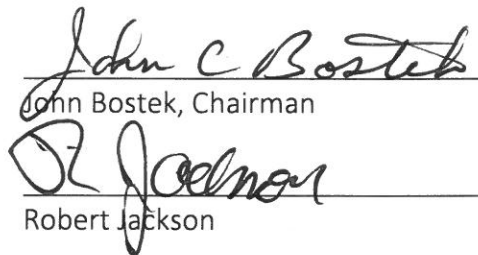 John C Bostek
John Bostek, Chairman
R Jackson
Robert Jackson